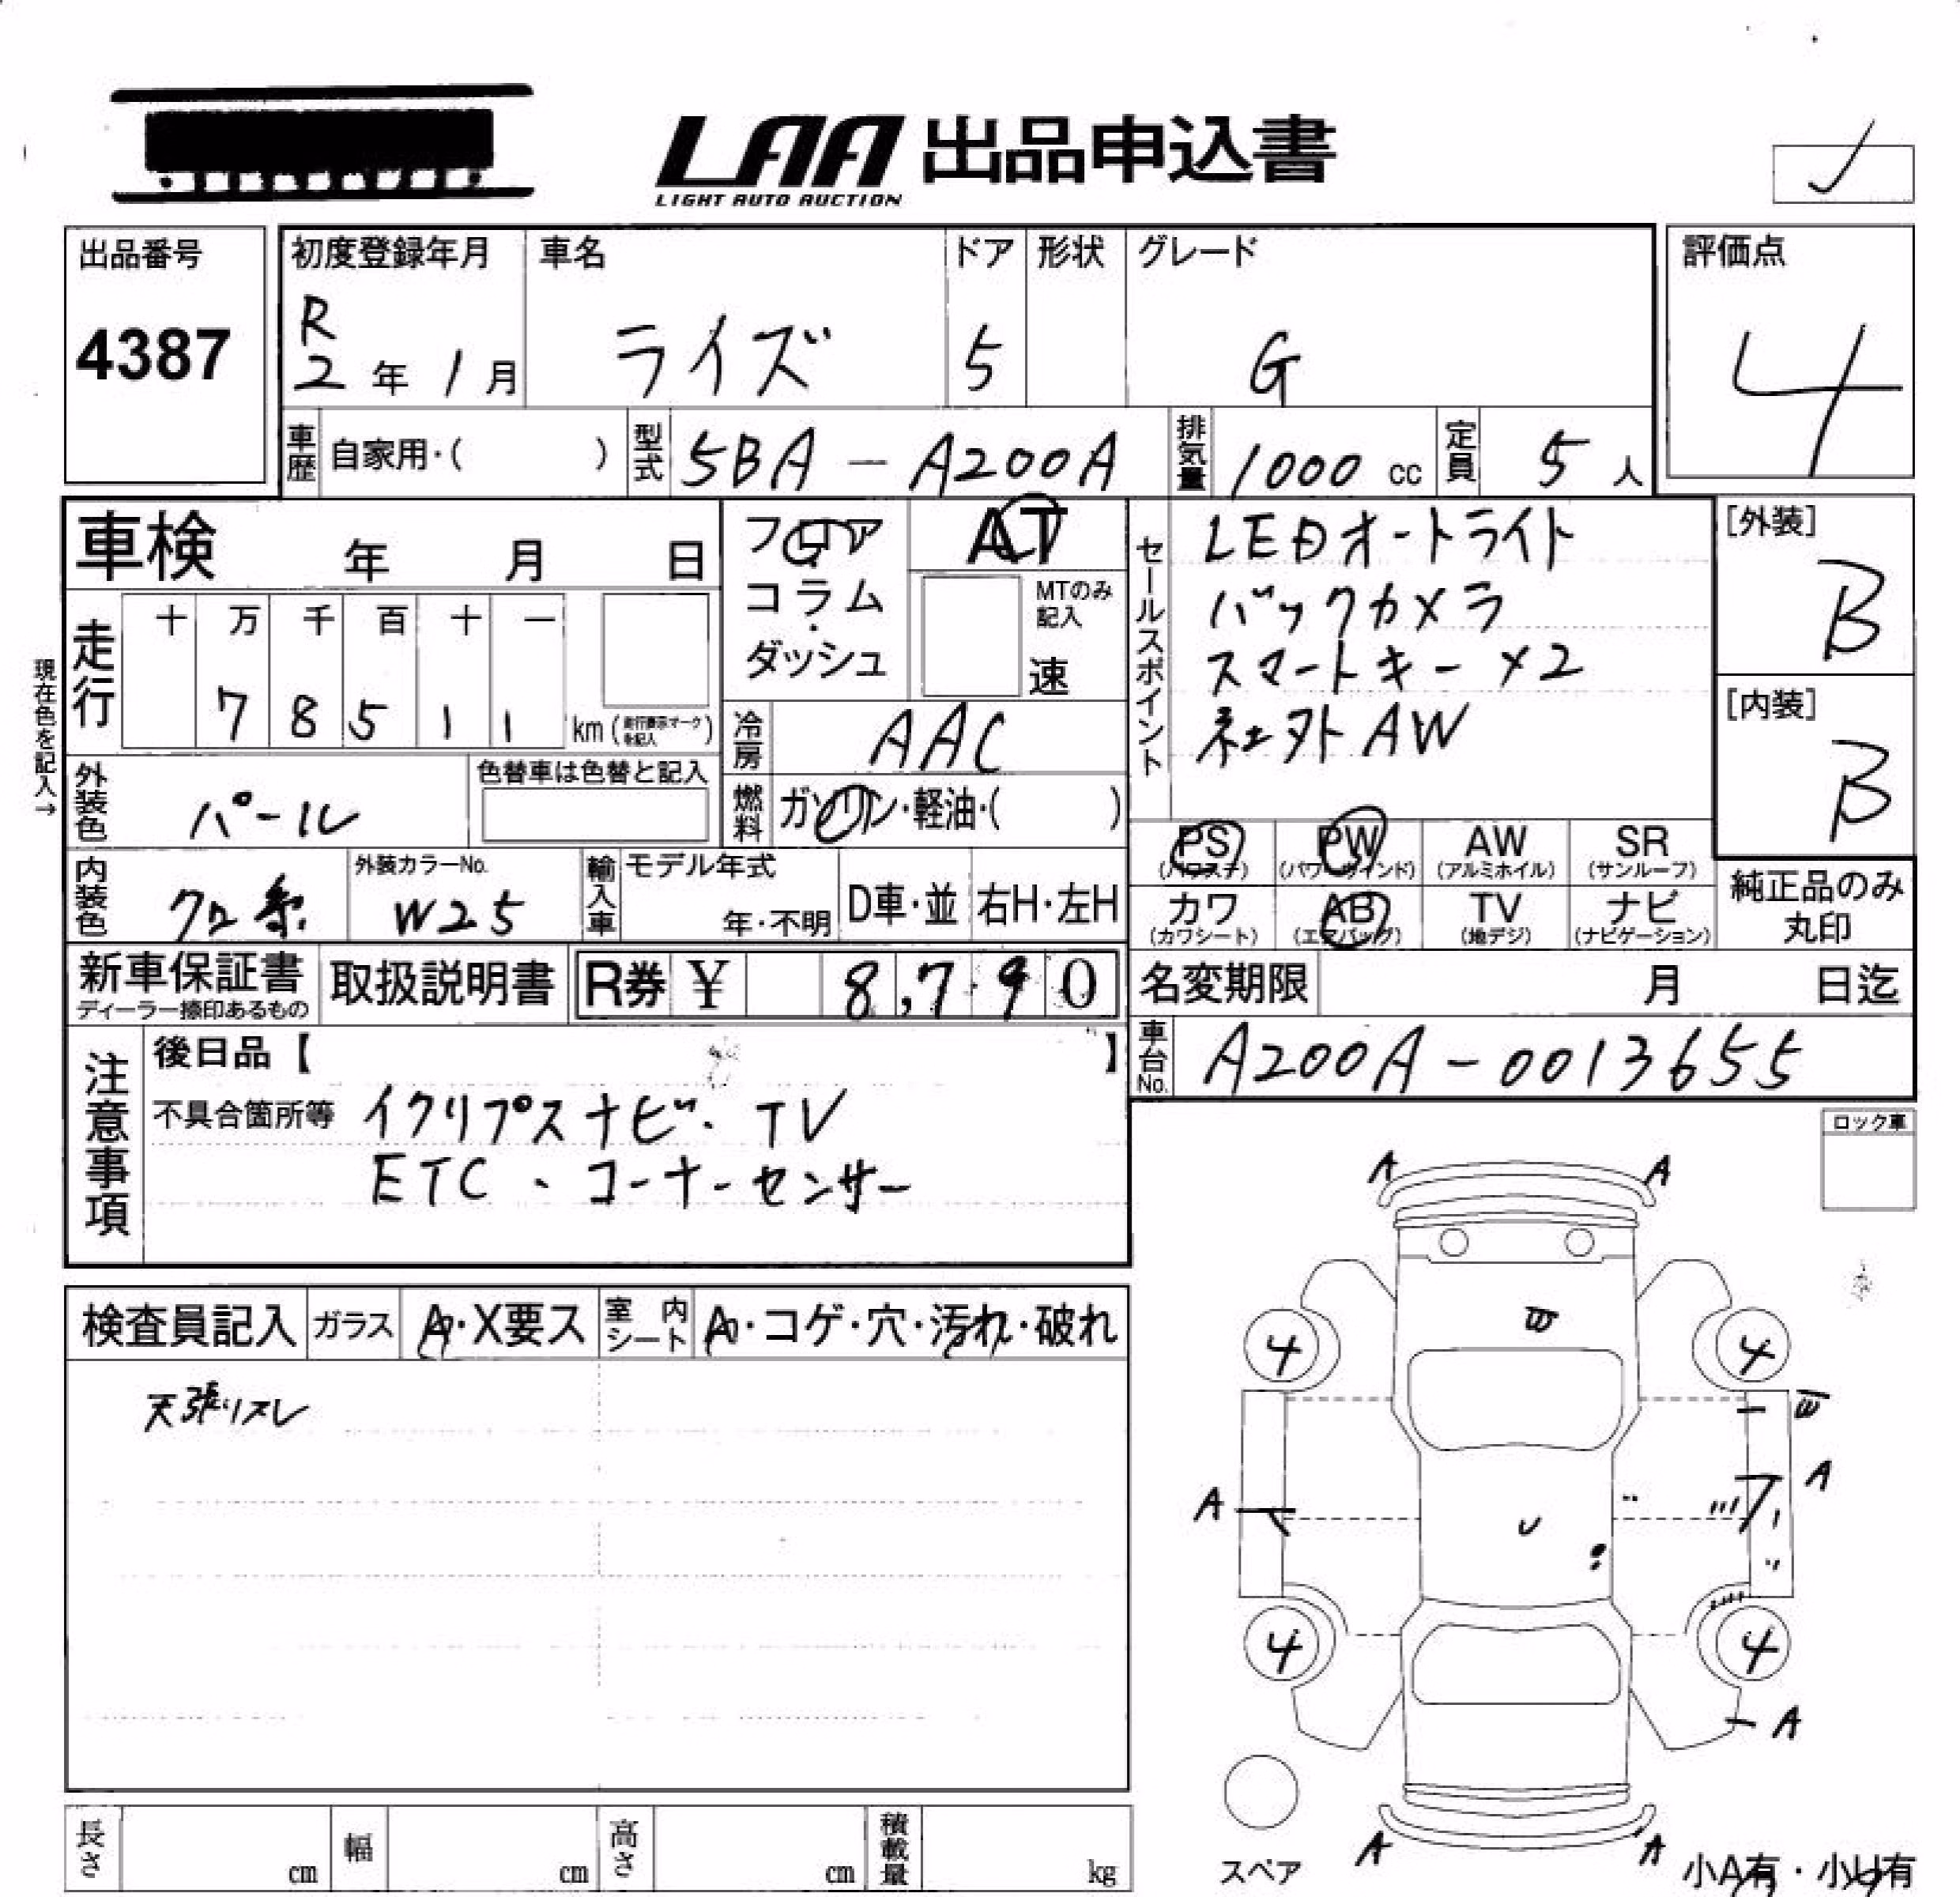 LAA 出品申込書
LIGHT AUTO AUCTION
出品番号
4387
初度登録年月
R
2年1月
車名
ライズ
ドア
5
形状
グレード
G
評価点
4
車歴 自家用・( )
型式 5BA-A200A
排気量 1000cc
定員 5人
車検 年 月 日
フロア
コラム
・
ダッシュ
AT
MTのみ
記入
速
現在色を記入→
走行 十 万 千 百 十 一
7 8 5 1 1 km
冷房 AAC
外装色 パール
色替車は色替と記入
燃料 ガソリン・軽油・( )
内装色 クロ系
外装カラーNo.
W25
輸入車
モデル年式
年・不明
D車・並
右H・左H
セールスポイント
LEDオートライト
バックカメラ
スマートキー×2
社外AW
[外装]
B
[内装]
B
PS
(パワステ)
PW
(パワーウインド)
AW
(アルミホイル)
SR
(サンルーフ)
カワ
(カワシート)
AB
(エアバッグ)
TV
(地デジ)
ナビ
(ナビゲーション)
純正品のみ
丸印
新車保証書
ディーラー捺印あるもの
取扱説明書
R券 ¥ 8,790
名変期限 月 日迄
車台No. A200A-0013655
注意事項
後日品【 】
不具合箇所等 イクリプスナビ・TV
ETC、コーナーセンサー
ロック車
検査員記入
ガラス A・X要ス
室内シート A・コゲ・穴・汚れ・破れ
天張リスレ
A A
4 4
A
A
4 4
A
A A
スペア
小A有・小U有
長さ cm
幅 cm
高さ cm
積載量 kg